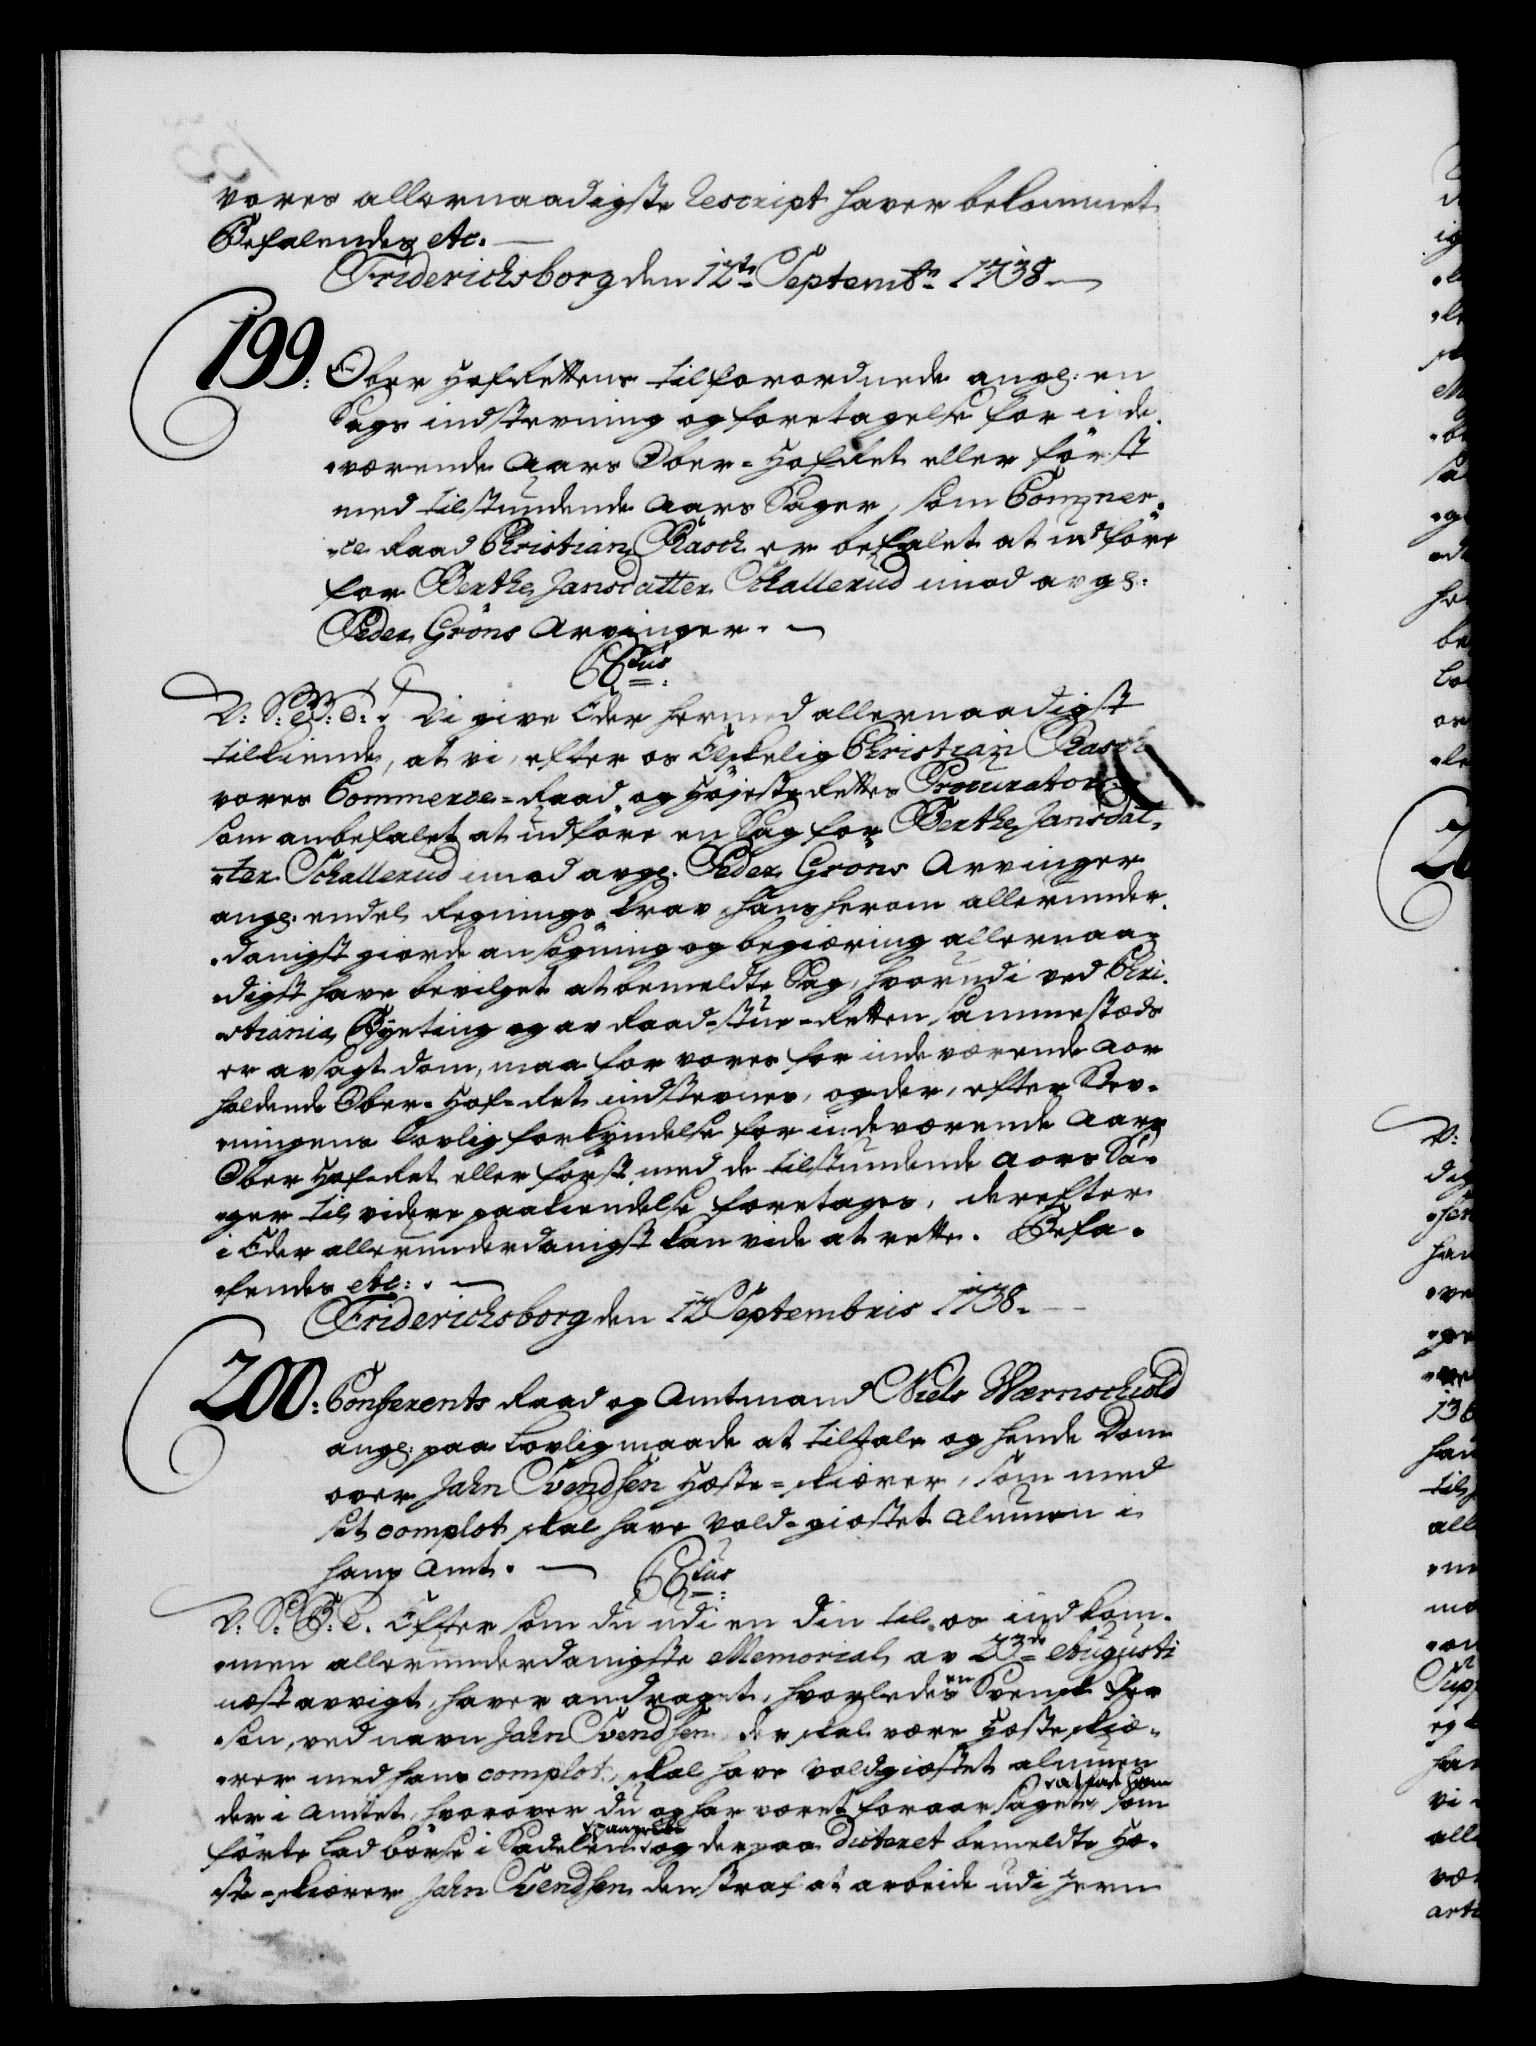 vores allernaadigste Rescript haver bekommet
Befalendes etc.
Friderichsborg den 12te Septembr 1738.
199: Ober HofRettens tilforordnede ang: en
Sags indstevning og foretagelse for inde
værende Aars Ober-HofRet eller först
med tilstundende Aars Sager, som Commer-
ce Raad Christian Rasch er befalet at udföre
for Berthe Jansdatter Schallerud imod avg:
Peder Gröns Arvinger.
C 6tus
V: S: G: T: Vi give Eder hermed allernaadigst
tilkiende, at vi, efter os Elskelig Christian Rasch
vores Commerce-Raad og Höjeste Rettes Procurator
som anbefalet at udföre en Sag for Berthe Jansdat-
ter Schallerud imod avg. Peder Gröns Arvinger
ang: endel Regnings krav, hans herom allerunder-
danigst giorde ansögning og begiæring allernaa-
digst have bevilget at bemeldte Sag, hvorudi ved Chri-
stiania Byeting og av Raad-stue-Retten sammestæds
er avsagt dom, maa for vores for indeværende Aar
holdende Ober-Hof-Ret indstevnes, og der, efter Stev-
ningens lovlig forkyndelse for indeværende Aars
Ober Hof-Ret eller först med de tilstundende Aars Sa-
ger til videre paakiendelse foretages, derefter
i Eder allerunderdanigst kan vide at rette. Befa-
lendes etc:
Friderichsborg den 12 Septembris 1738.
200: Conferents Raad og Amtmand Niels Wærnschiold
ang: paa lovlig maade at tiltale og hende Dom
over Jahn Svendsen Heste-skiærer, som med
sit complot skal have vold-giestet almuen i
hans Amt.
C 6tus
V: S: G: T. Efter som du udi en din til os indkom-
men allerunderdanigste Memorial av 23de Augusti
næst avvigt, haver andraget, hvorledes en Svensk Per
son, ved navn Jahn Svendsen, der skal være Heste skiæ-
rer med hans complot, skal have voldgiestet almuen
der i Amtet, hvorover du og har været foraarsaget at lade ham som
förte lad börse i Sadelen og derpaa dicteret bemeldte He-
ste-skiærer Jahn Svendsen den straf at arbeide udi Jern